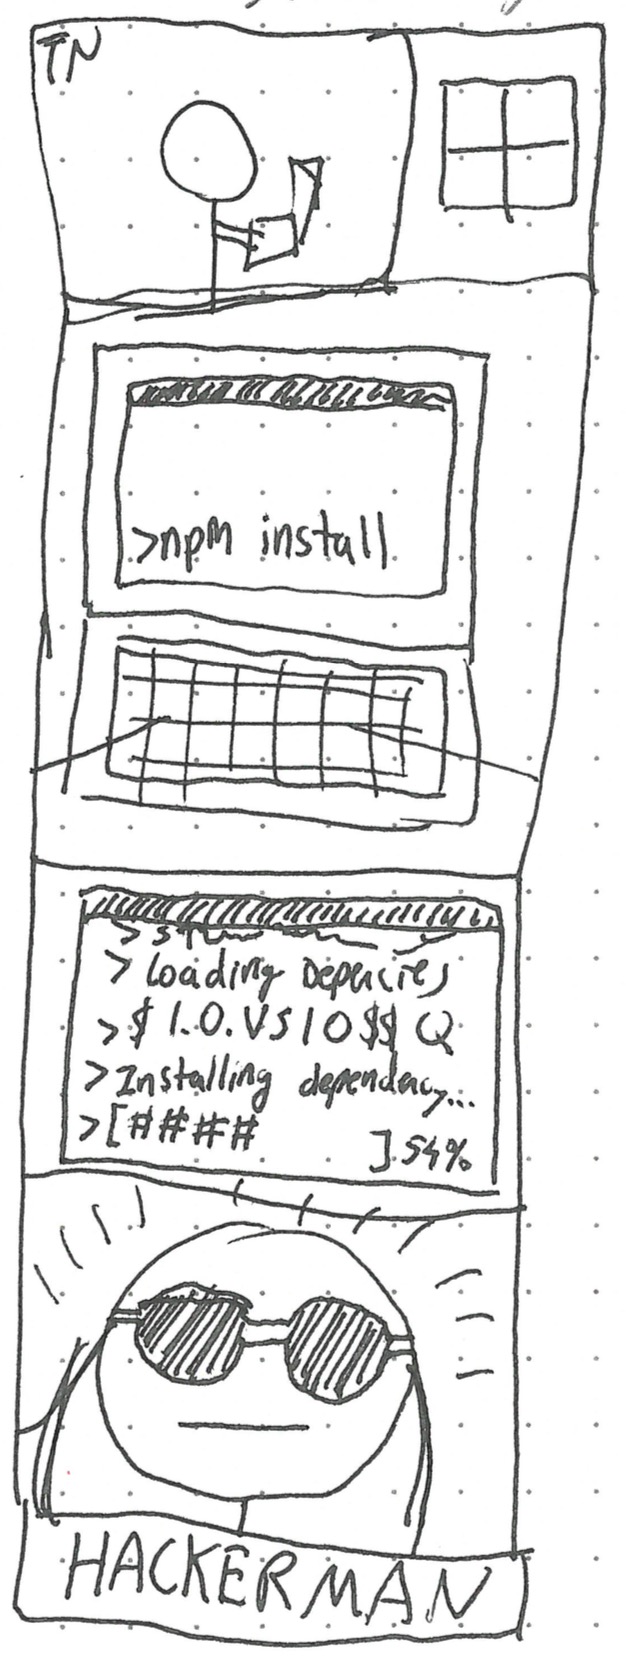 TN
>npm install
>
> Loading Depencies
>$ 1.0.VS10$$ Q
>Installing dependency...
>[#### ]54%
HACKERMAN